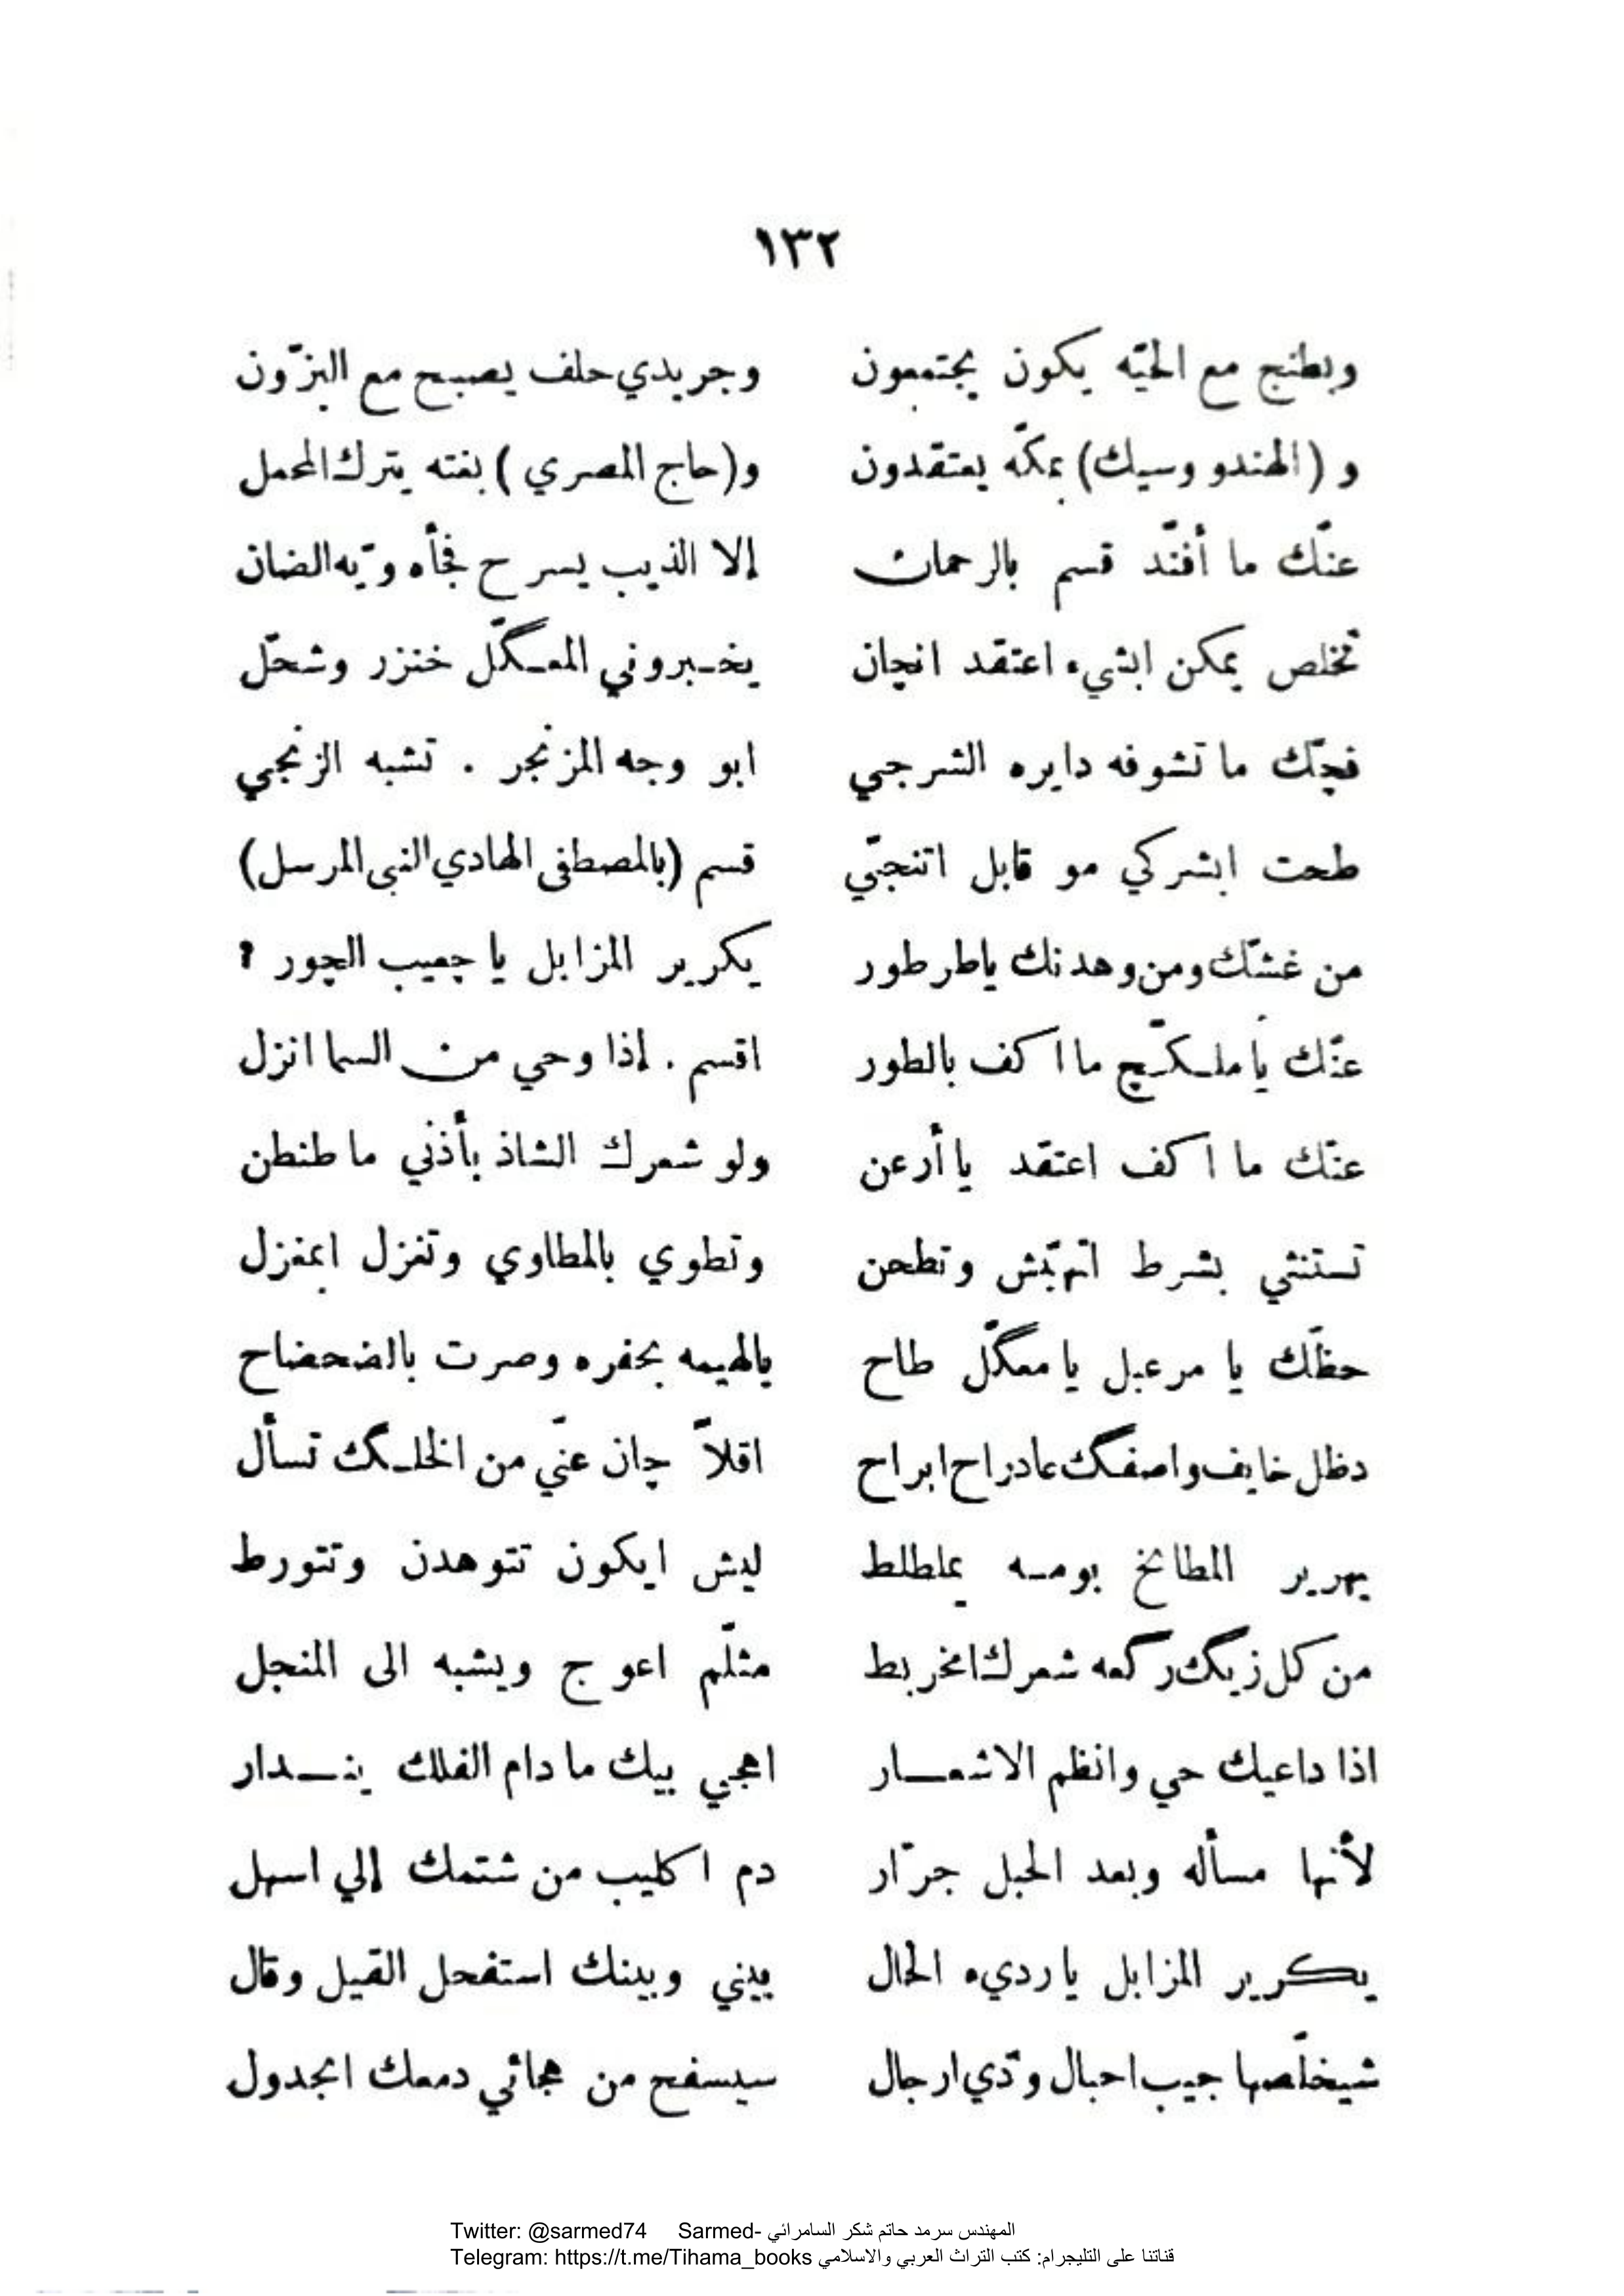 ١٣٢
وبطنج مع الحيّه يكون يجتمعون وجريدي حلف يصبح مع البزّون
و (الهندو وسيك) بمكّه يعتقدون و(حاج المصري) بفته يترك المحمل
عنّك ما أفنّد قسم بالرحمان إلا الذيب يسرح فجأه ويّه الضان
تخلص يمكن ابشيء اعتقد انچان يخبروني المعگّل خنزر وشحّل
فچّك ما تشوفه دايره الشرجي ابو وجه المزنجر . تشبه الزنجي
طحت ابشركي مو قابل اتنجّي قسم (بالمصطفى الهادي النبي المرسل)
من غشّك ومن وهدنك ياطرطور يكرير المزابل يا چعيب الچور ؟
عنّك يا ملكّچ ما اكف بالطور اقسم . إذا وحي من السما انزل
عنّك ما اكف اعتقد يا أرعن ولو شعرك الشاذ بأذني ما طنطن
تستنثي بشرط اتهبّش وتطحن وتطوي بالمطاوي وتغزل ابمغزل
حظّك يا مرعبل يا معگّل طاح بالهيمه بحفره وصرت بالضحضاح
دظل خايف واصفگك عادراح ابراح اقلاّ چان عنّي من الخلگ تسأل
يهرير المطايخ بومه يملطلط ليش ايكون تتوهدن وتتورط
من كل زيگ رگعه شعرك امخربط مثلّم اعوج ويشبه الى المنجل
اذا داعيك حي وانظم الاشعار اهجي بيك ما دام الفلك يندار
لأنها مسأله وبعد الحبل جرّار دم اكليب من شتمك إلي اسهل
يكرير المزابل يا رديء الحال بيني وبينك استفحل القيل وقال
شيخلّصها جيب احبال ودّي ارجال سيسفح من هجائي دمعك انجدول
Twitter: @sarmed74 Sarmed- المهندس سرمد حاتم شكر السامرائي
Telegram: https://t.me/Tihama_books قناتنا على التليجرام: كتب التراث العربي والاسلامي